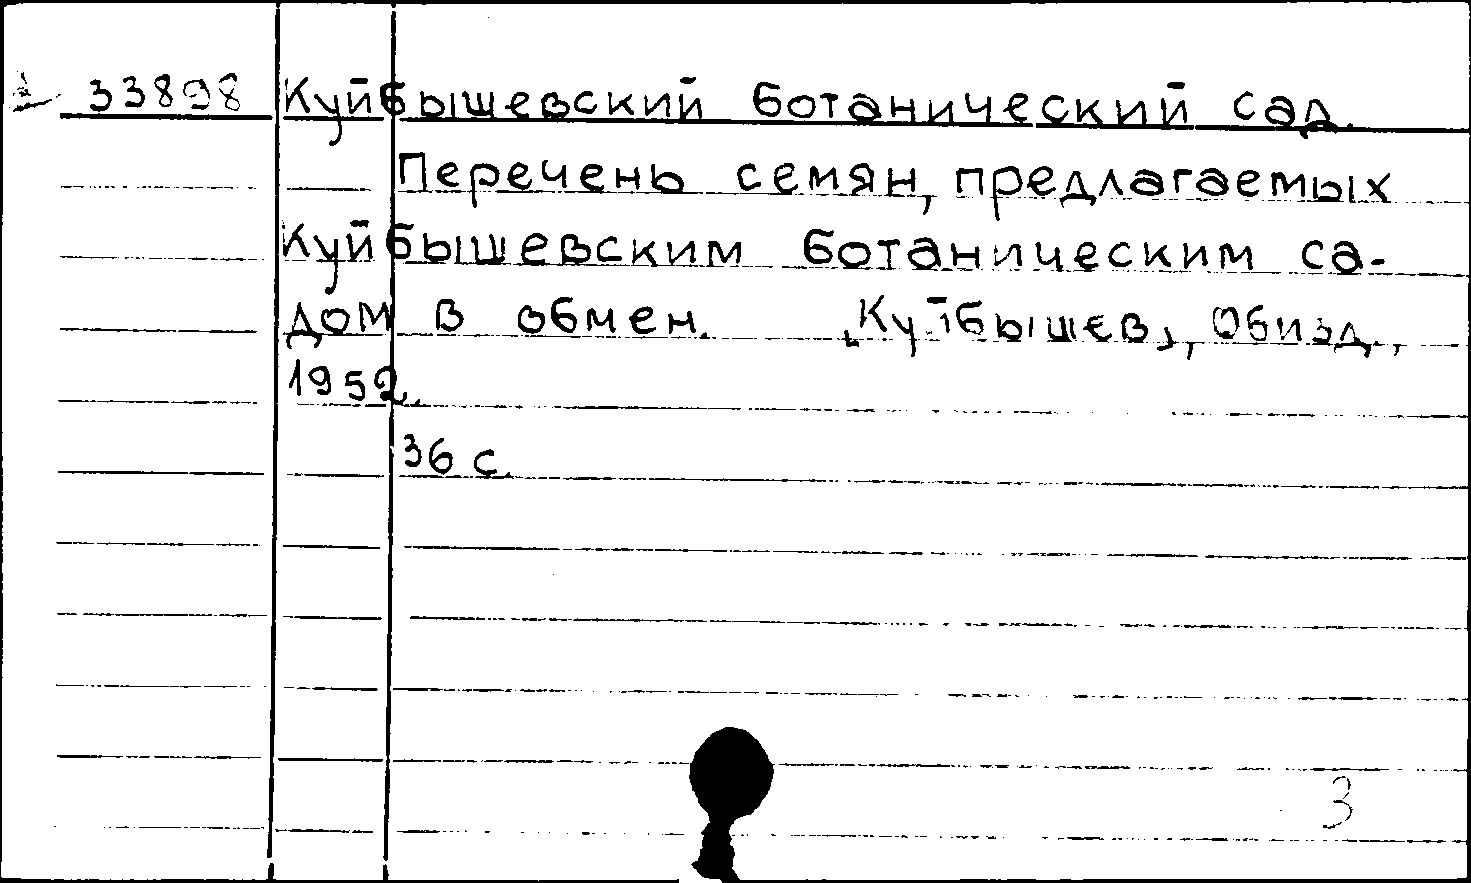 33898 Куйбышевский ботанический сад.
Перечень семян, предлагаемых
Куйбышевским ботаническим са-
дом в обмен. [Куйбышев], Обизд.,
1952.
36 с.
3